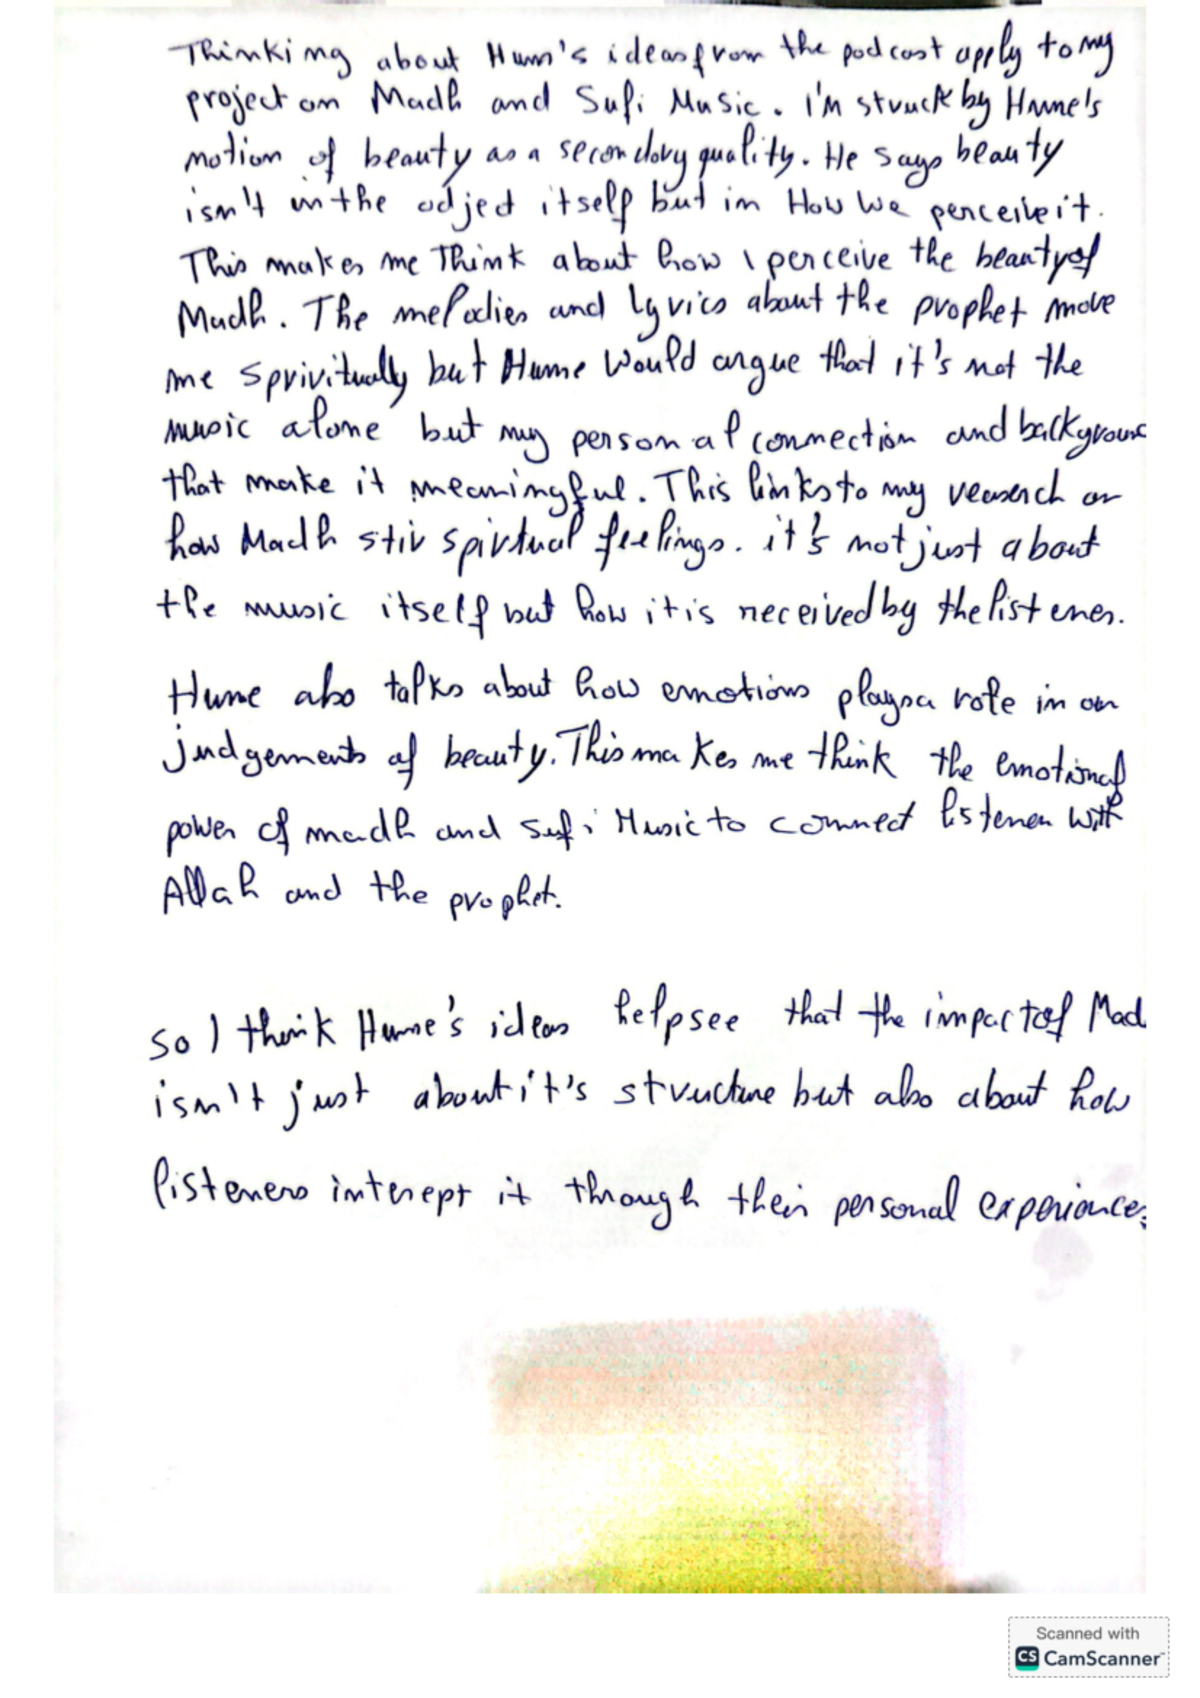 Thinking about Hum's ideas from the podcast apply to my
project on Madh and Sufi Music. I'm struck by Hume's
notion of beauty as a secondory quality. He says beauty
isn't in the odject itself but in How We perceive it.
This makes me Think about how I perceive the beauty of
Madh. The melodies and lyrics about the prophet move
me sprivitually but Hume Would argue that it's not the
music alone but my personal connection and background
that make it meaningful. This links to my research on
how Madh stir spirtual feelings. it's not just about
the music itself but how it is received by the listener.
Hume also talks about how emotions plays a role in our
judgements of beauty. This makes me think the emotional
power of madh and sufi Music to connect listener with
Allah and the prophet.
so I think Hume's ideas help see that the impact of Mad
isn't just about it's structure but also about how
listeners interept it through their personal experience.
Scanned with
CS CamScanner